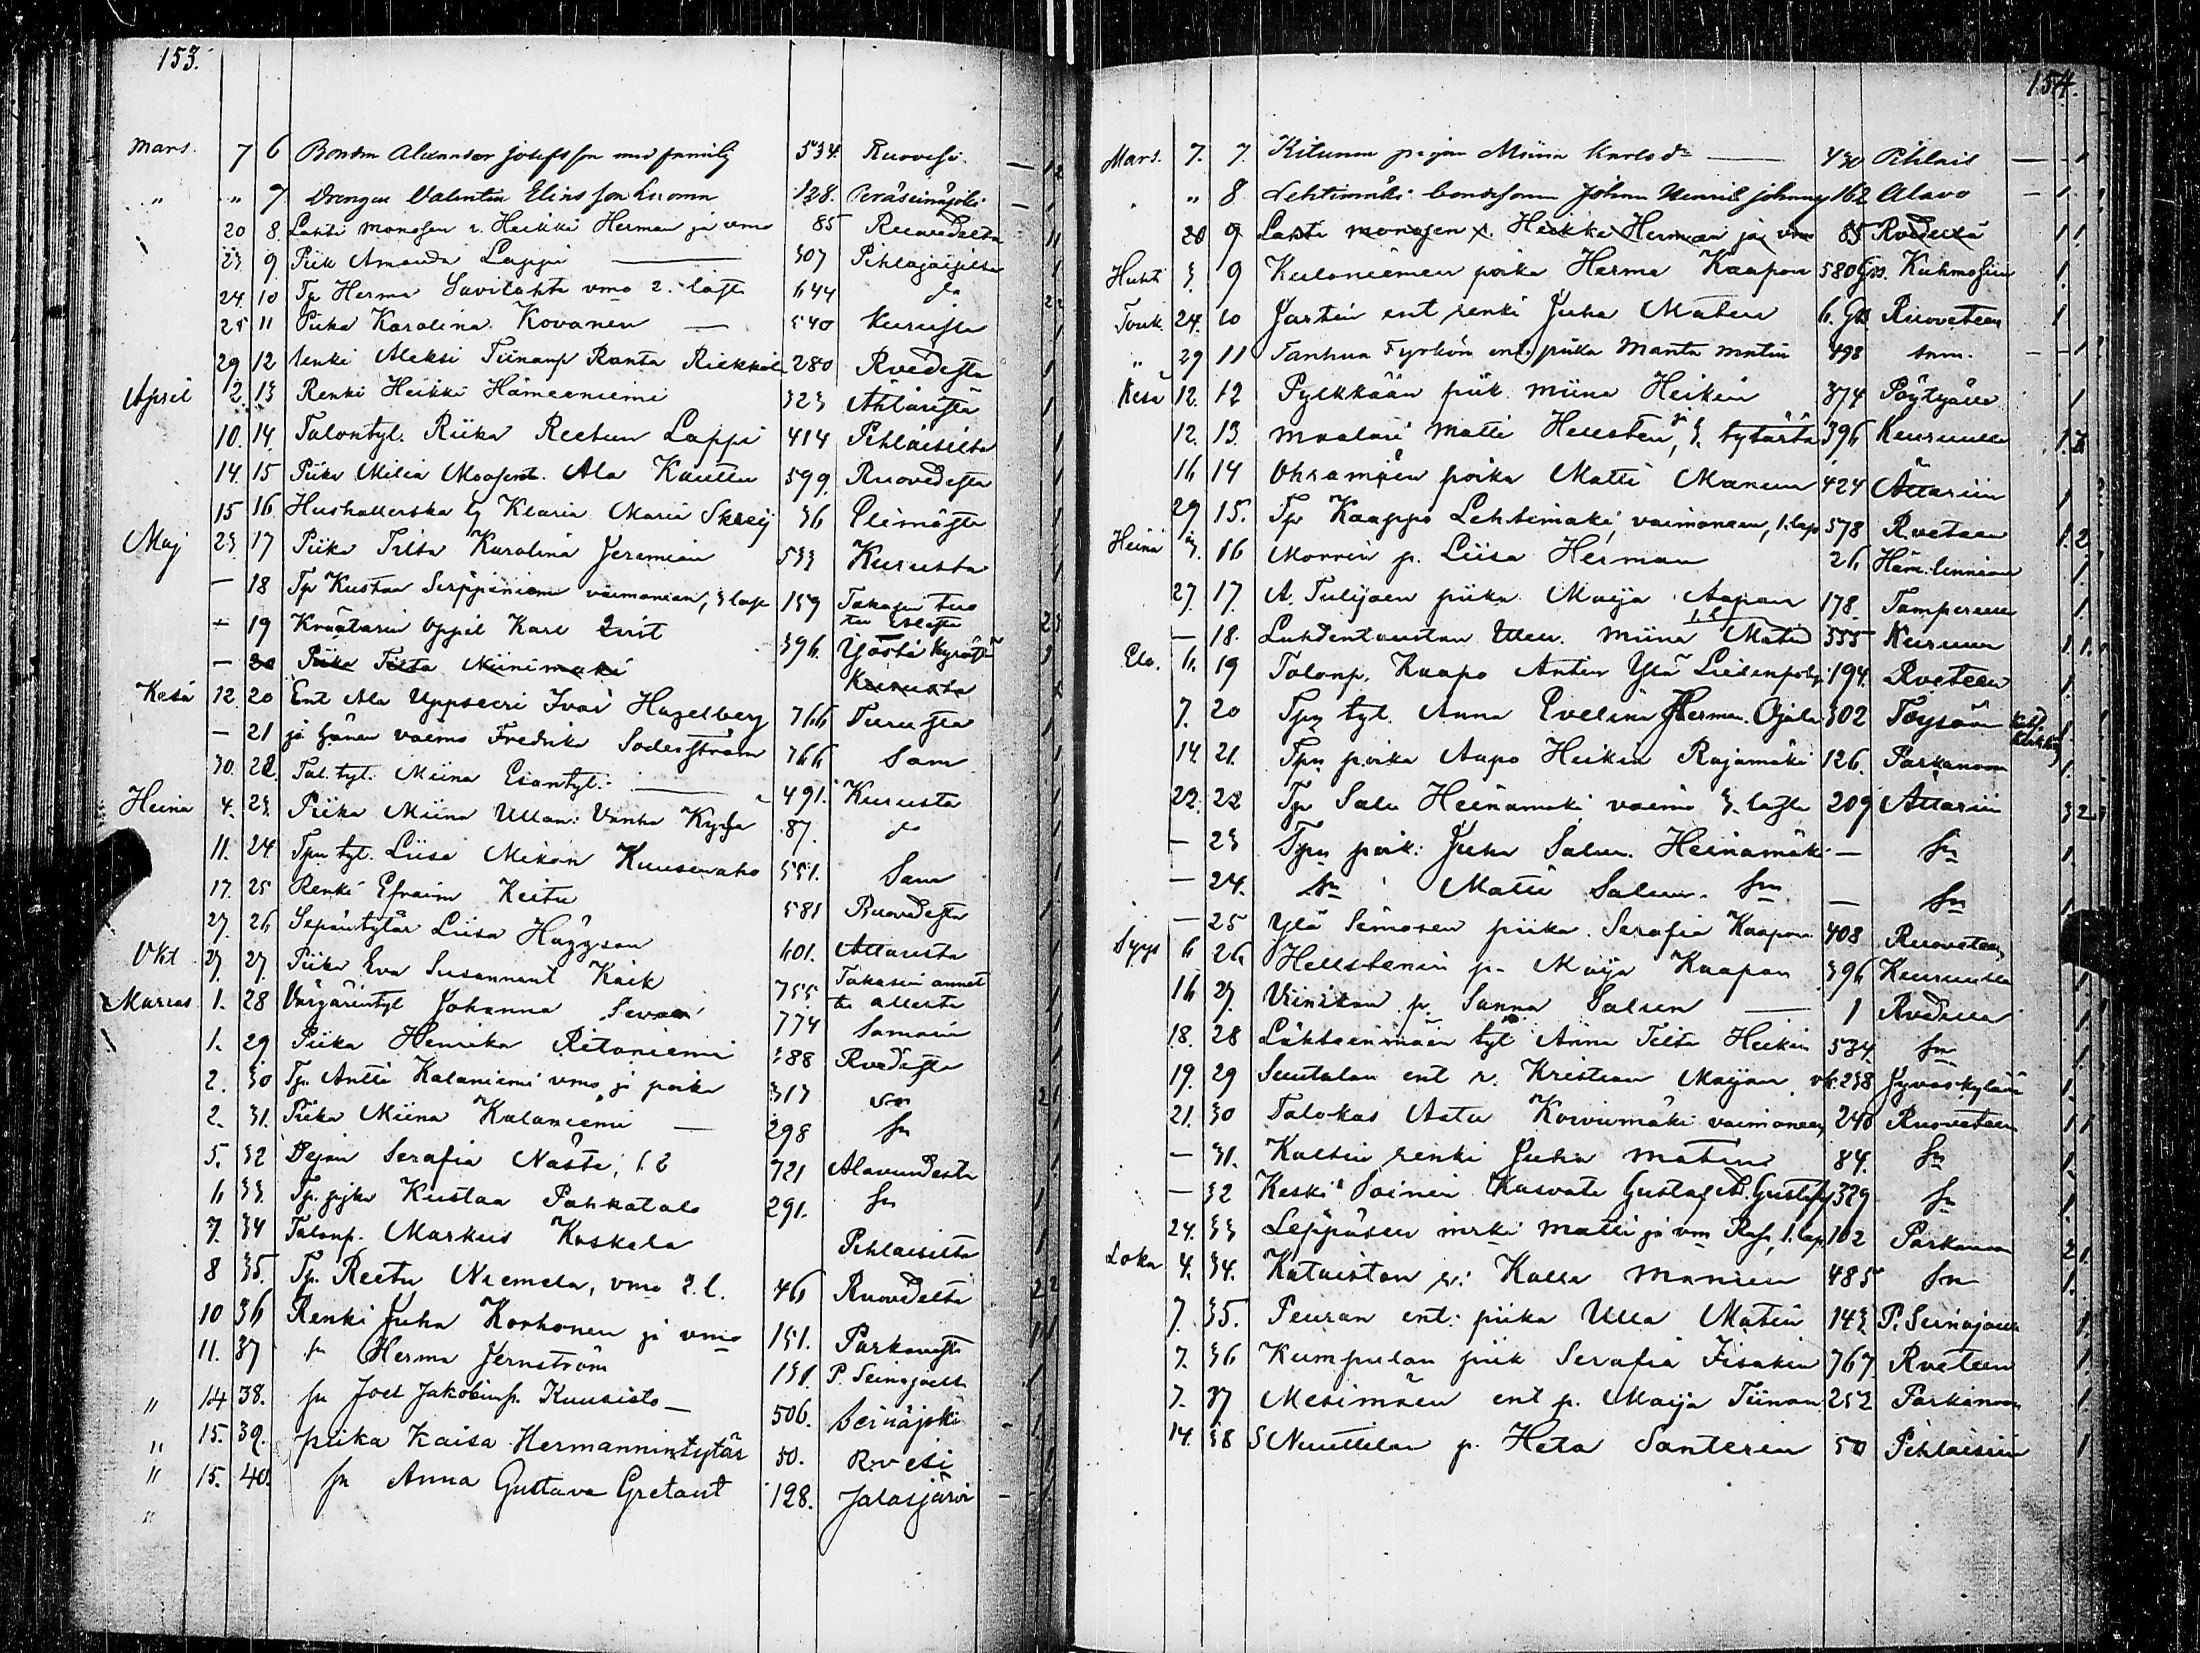 153.
Mars. 7 6 Bonden Alexander Josefsson med familj 534. Ruovesi. — 12
" " 7 Drengen Valentin Eliasson Luoma 128. Peräseinäjoki — 1
20 8. Lahti monosen r. Heikki Herman ja vmo 85 Ruovedelta 11
23 9 Piik Amanda Lappi — 307 Pihlajavelta 1
24. 10 Tp Herma Savilahti vmo 2. lasta 644 do 22
25 11 Piika Karolina Kovanen — 540 Kurusta 1
29 12 Renki Aleksi Tiinanp Ranta 280 Rvedesta 1
April 2. 13 Renki Heikki Hämeeniemi 323 Ähtäristä 1
10. 14. Talontyt. Riika Reetun Lappi 414 Pihlaisilta 1
14. 15 Piika Milia Ala Kauttu 599. Ruovedesta 1
15 16. Hushållerska Klaria Maria 36 1
Maj 23 17 Piika Tilta Karolina Jeremian 533 Kurusta 1
— 18 Tp Kustaa Serppiniemi vaimonian, 3 last 159 Takasin tuo 23
— 19 Kräätärin Oppil Karl 396. 1
— 20 Piika Tilta Niinimäki Kurusta
Kesä 12 20 Ent Ala Uppseeri Ivar Hagelberg 766 Turusta 1
— 21 ja hänen vaimo Fredrika Söderström 766 Sam 1
30. 22. Tal. tyt. Miina Esantyt. — 491. Kurusta 1
Heinä 4. 23. Piika Miina Ullan: Vanha 87. do 1
11. 24 Tpn tyt. Liisa Mikon Kuusenaho 551. Sam 1
17. 25 Renki Efraim Keitu 581 Ruovedesta 1
27. 26 Sepäntytär Liisa Häggman 601. Attarista 1
Okt 27. 27. Piika Eva Susannant Kaik 755 Takasin annet 1
Marras 1. 28 Johanna 774 Samoin 1
1. 29 Piika Henrika Ritaniemi 388 Rvedesta 1
2. 30 Tp. Antti Kalaniemi vmo ja poika 317 sm 21
2. 31. Piika Miina Kalaniemi — 298 sm 1
5. 32 Serafia 721 Alavudesta 1
6 33. Tp. pojka Kustaa Pahkatalo 291. sm 1
7. 34 Talonp. Markus Koskela Pihlaisilta 1
8 35. Tp. Reetu Niemelä, vmo 2. l. 46 Ruovedelta 22
10 36 Renki Juha Korhonen ja vmo 151. Parkanosta 11
11. 37 sm Herma Jernström 131. P. Seinäjoelta 1
" 14 38. sm Joel Jakobinp. Kuusisto — 506. Seinäjoki — 1
" 15. 39. piika Kaisa Hermannintytär 50. R.vesi 1
" 15. 40. sm Anna Gustava Gretant 128. Jalasjärvi — 1
154.
Mars. 7. 7. Kitunen pigan Miina Karlsdr — 430 Pihlais — 1
" 8 Lehtimäki bondesonen Johan Henrik 162 Alavo — 1
20 9 Lahti monosen r. Heikki Herman ja vmo 85 Rvedeltä 11
Huhti 3. 9 Kuloniemen poika Herma Kaapon 580 Kuhmosiin 1.
Touk. 24. 10 Jartin ent renki Juha Matin 6. Ruoveteen 1
" 29 11 Tanhua Tyrkön ent. piika Manta Matin 498 sam. — 1
Kesä 12. 12 Pylkkään piik Miina Heikin 374 Pöytyälle 1
12. 13. Maalari Matti Hellsten, ja 3. tytärtä 396 Keuruulle 1.3
16 14 Ohramäen poika Matti Manun 424 Attariin 1
29. 15. Tp Kaappo Lehtimäki, vaimoneen, 1. laps 578 Rveteen 1.2.
Heinä 3. 16 Monnin p. Liisa Herman 26 Häm. linnaan 1.
27. 17. A. Tulijoen piika Maija Aapon 178. Tampereelle 1.
— 18. Luhdentaustan Ullan. Miina Matin 555 Keuruun 1.1.
Elo. 6. 19 Talonp. Kaapo Antin Ylä 194. Rveteen 1.
7. 20 Tpn tyt. Anna Evelina Herman. Ojala 302 Töysään 1.
14. 21. Tpn poika Aapo Heikin Rajamäki 126. Parkanoon 1.
22. 22 Tp Salu Heinämäki vaimo 3. lasta 209 Attariin 32
— 23 Tpn poik: Juha Salun. Heinämäki — sm 1.
— 24. sm Matti Salun. sm — sm 1
— 25 Ylä Simosen piika. Serafia Kaapon 408 Ruoveteen
Syys 6 26 Hellstenin p. Maija Kaapon 396 Keuruulle 1.
16 27. Viinikan p. Sanna Salun — 1 Rvedelle 1
18. 28 Lähteenmäen tyt Anna Tilta Heikin 534. sm 1.
19. 29 Suutalan ent r. Kristian Maijan 238 Jyväskylään 1.
21. 30 Talokas Aatu Koivumäki vaimoneen 240 Ruoveteen 11
— 31. Kaltin renki Juha Matins 84. sm 1.
— 32 Keski Soinin Kasvate Gustaf 329 sm 1.
24. 33 Leppäsen Matti ja vmo 1. lap 102 Parkanoon 21.
Loka 4. 34. Kataistan r: Kalle Mannin 485 sm 1.
7. 35. Peuran ent: piika Ulla Matin 143. P. Seinäjoelle 1.
7. 36 Kumpulan piik Serafia Iisakin 767. Rveteen 1.
7. 37 Mesimäen ent p. Maija Tiinan 252 Parkanoon 1.
14. 38 Nuuttilan p. Heta Santerin 50 Pihlaisiin 1